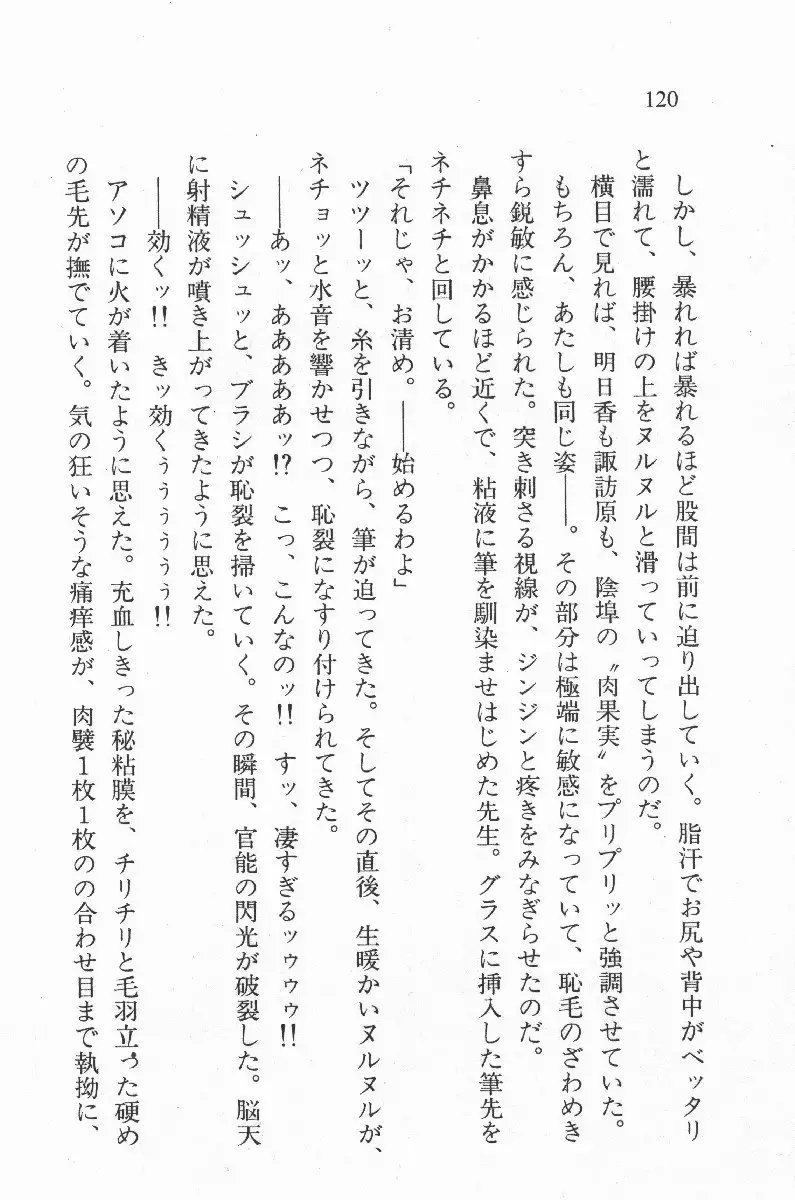 120
しかし、暴れれば暴れるほど股間は前に迫り出していく。脂汗でお尻や背中がベッタリ
と濡れて、腰掛けの上をヌルヌルと滑っていってしまうのだ。
横目で見れば、明日香も諏訪原も、陰埠の〝肉果実〟をプリプリッと強調させていた。
もちろん、あたしも同じ姿――。その部分は極端に敏感になっていて、恥毛のざわめき
すら鋭敏に感じられた。突き刺さる視線が、ジンジンと疼きをみなぎらせたのだ。
鼻息がかかるほど近くで、粘液に筆を馴染ませはじめた先生。グラスに挿入した筆先を
ネチネチと回している。
「それじゃ、お清め。――始めるわよ」
ツツーッと、糸を引きながら、筆が迫ってきた。そしてその直後、生暖かいヌルヌルが、
ネチョッと水音を響かせつつ、恥裂になすり付けられてきた。
――あッ、あああああッ!? こっ、こんなのッ!! すッ、凄すぎるッゥゥゥ!!
シュッシュッと、ブラシが恥裂を掃いていく。その瞬間、官能の閃光が破裂した。脳天
に射精液が噴き上がってきたように思えた。
――効くッ!! きッ効くぅぅぅぅぅ!!
アソコに火が着いたように思えた。充血しきった秘粘膜を、チリチリと毛羽立った硬め
の毛先が撫でていく。気の狂いそうな痛痒感が、肉襞１枚１枚のの合わせ目まで執拗に、